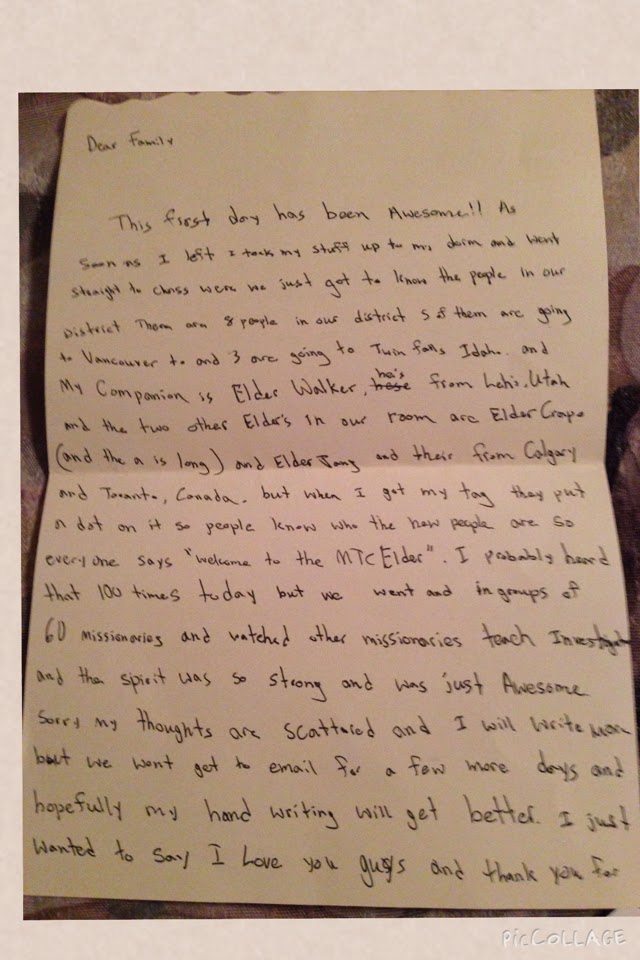 Dear Family
This first day has been Awesome!! As
soon as I left I took my stuff up to my dorm and went
straight to class were we just got to know the people in our
District There are 8 people in our district 5 of them are going
to Vancouver to and 3 are going to Twin falls Idaho. and
My Companion is Elder Walker, he's from Lehi, Utah
and the two other Elder's in our room are Elder Crapo
(and the a is long) and Elder Jong and their from Calgary
and Toronto, Canada. but when I got my tag they put
a dot on it so people know who the new people are so
everyone says "welcome to the MTC Elder". I probably heard
that 100 times today but we went and in groups of
60 missionaries and watched other missionaries teach
and the spirit was so strong and was just Awesome
Sorry my thoughts are scattared and I will write more
but we wont get to email for a few more days and
hopefully my hand writing will get better. I just
wanted to say I Love you guys and thank you for
PicCOLLAGE